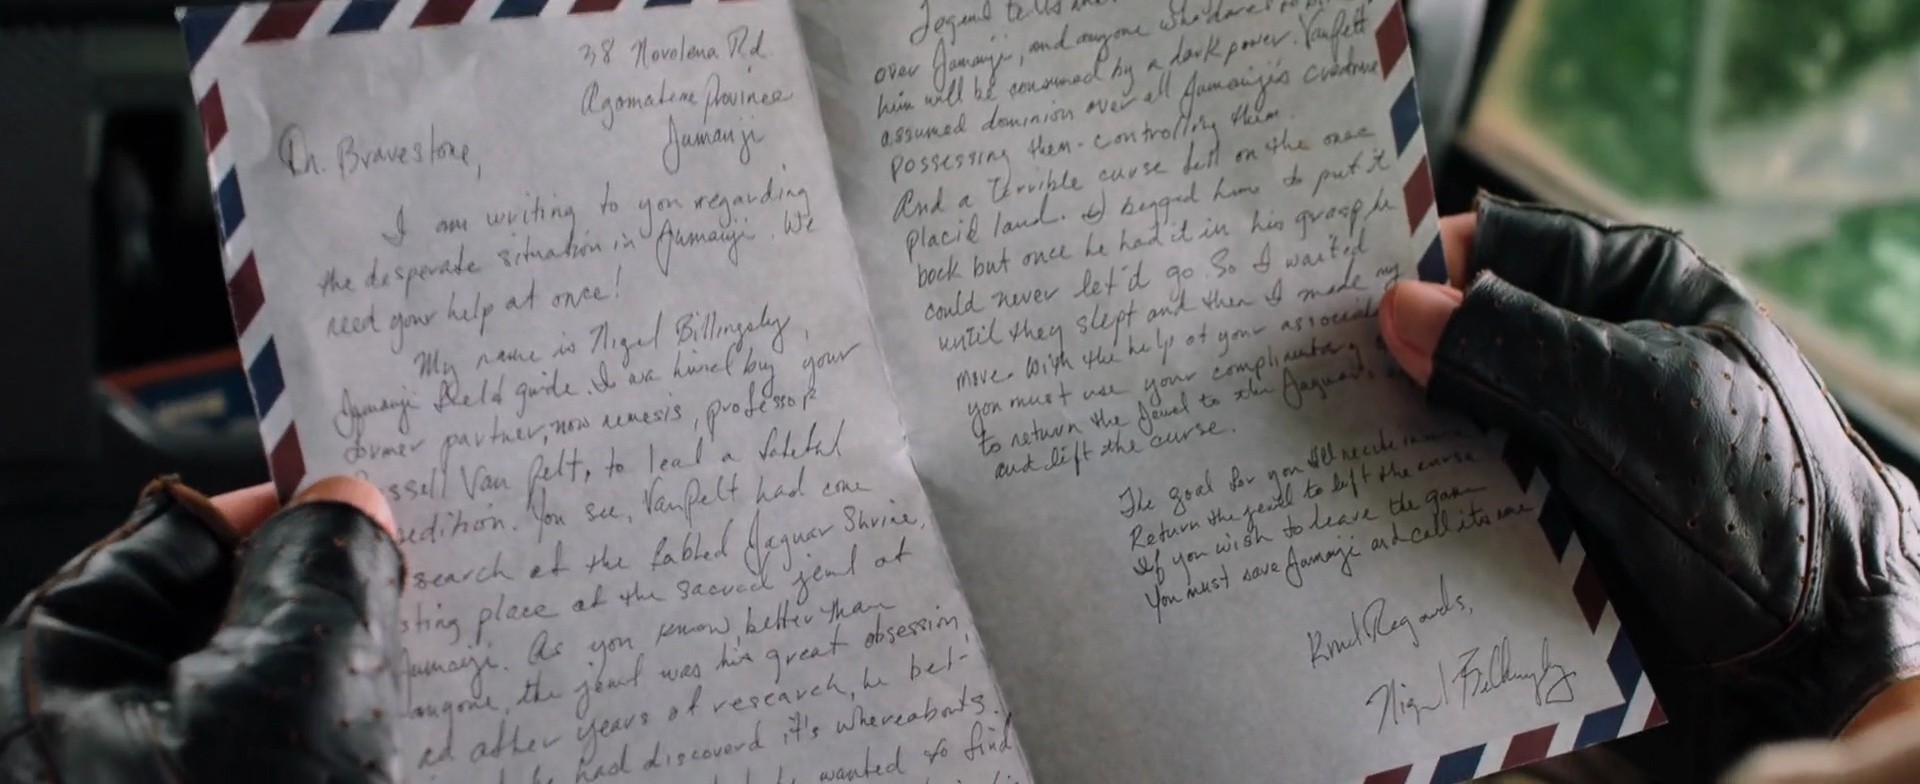 38 Novolena Rd
Agomatene Province
Jumanji
Dr. Bravestone,
I am writing to you regarding
the desperate situation in Jumanji. We
need your help at once!
My name is Nigel Billingsly,
Jumanji field guide. I was hired buy your
former partner, now nemesis, professor
ssell Van Pelt, to lead a fateful
edition. You see, Van Pelt had come
search of the fabled Jaguar Shrine,
sting place of the sacred jewel of
Jumanji. As you know, better than
anyone, the jewel was his great obsession,
ad after years of research, he bel-
he had discoverd it's whereabouts.
wanted to find
Legend tells
over Jumanji, and anyone who dares to
him will be consumed by a dark power. VanPelt
assumed dominion over all Jumanji's creature
possessing them - controlling them.
And a terrible curse fell on the once
placid land. I begged him to put it
back but once he had it in his grasp he
could never let'd go. So I waited
until they slept and then I made my
move. With the help of your associat
you must use your complimentary
to return the Jewel to the Jaguar's
and lift the curse.
The goal for you I'll recite in
Return the jewel to lift the curse
If you wish to leave the game
You must save Jumanji and call its name
Kind Regards,
Nigel Billingsly